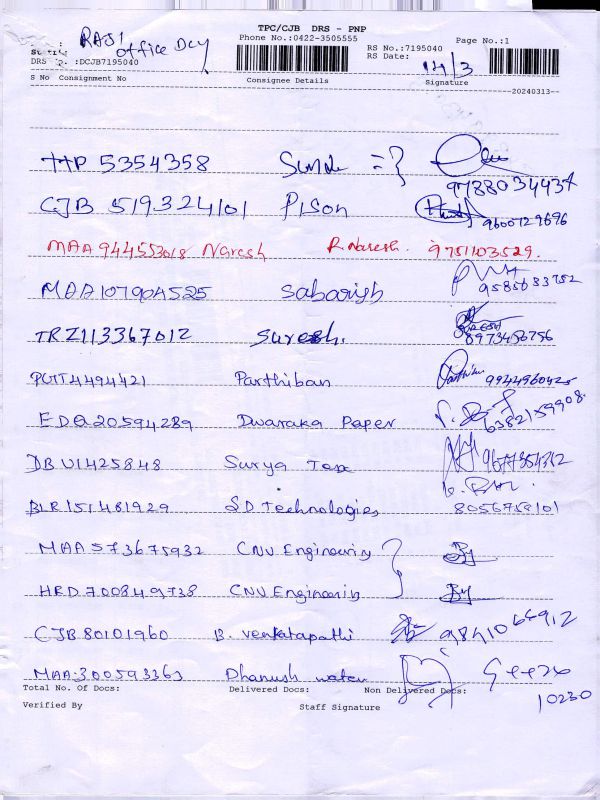 TPC/CJB DRS - PNP
RAJI office Dcy Phone No.:0422-3505555 Page No.:1
RS No.:7195040
DRS :DCJB7195040 RS Date: 14/3
S No Consignment No Consignee Details Signature
20240313
TTP 5354358
9788034437
CJB 519324101 Pison 9600729696
MAA944553018 Naresh R.Naresh. 9751103529.
MAA107904525 Sabarish 9585683752
TRZ113367012 Suresh. 8973456756
PGTT4494421 Parthiban 9944960425
EDQ20594289 Dwaraka Paper 6382159908.
DBU1425848 Surya Tex 9677354312
BLR151481929 SD Technologies 8056759101
MAA573675932 CNV Engineering
HRD700849738 CNV Engineering
CJB80101960 B. Venkatapathi 9841066912
MAA300593363 Dhanush water Geetha
Total No. Of Docs: Delivered Docs: Non Delivered Docs: 10230
Verified By Staff Signature